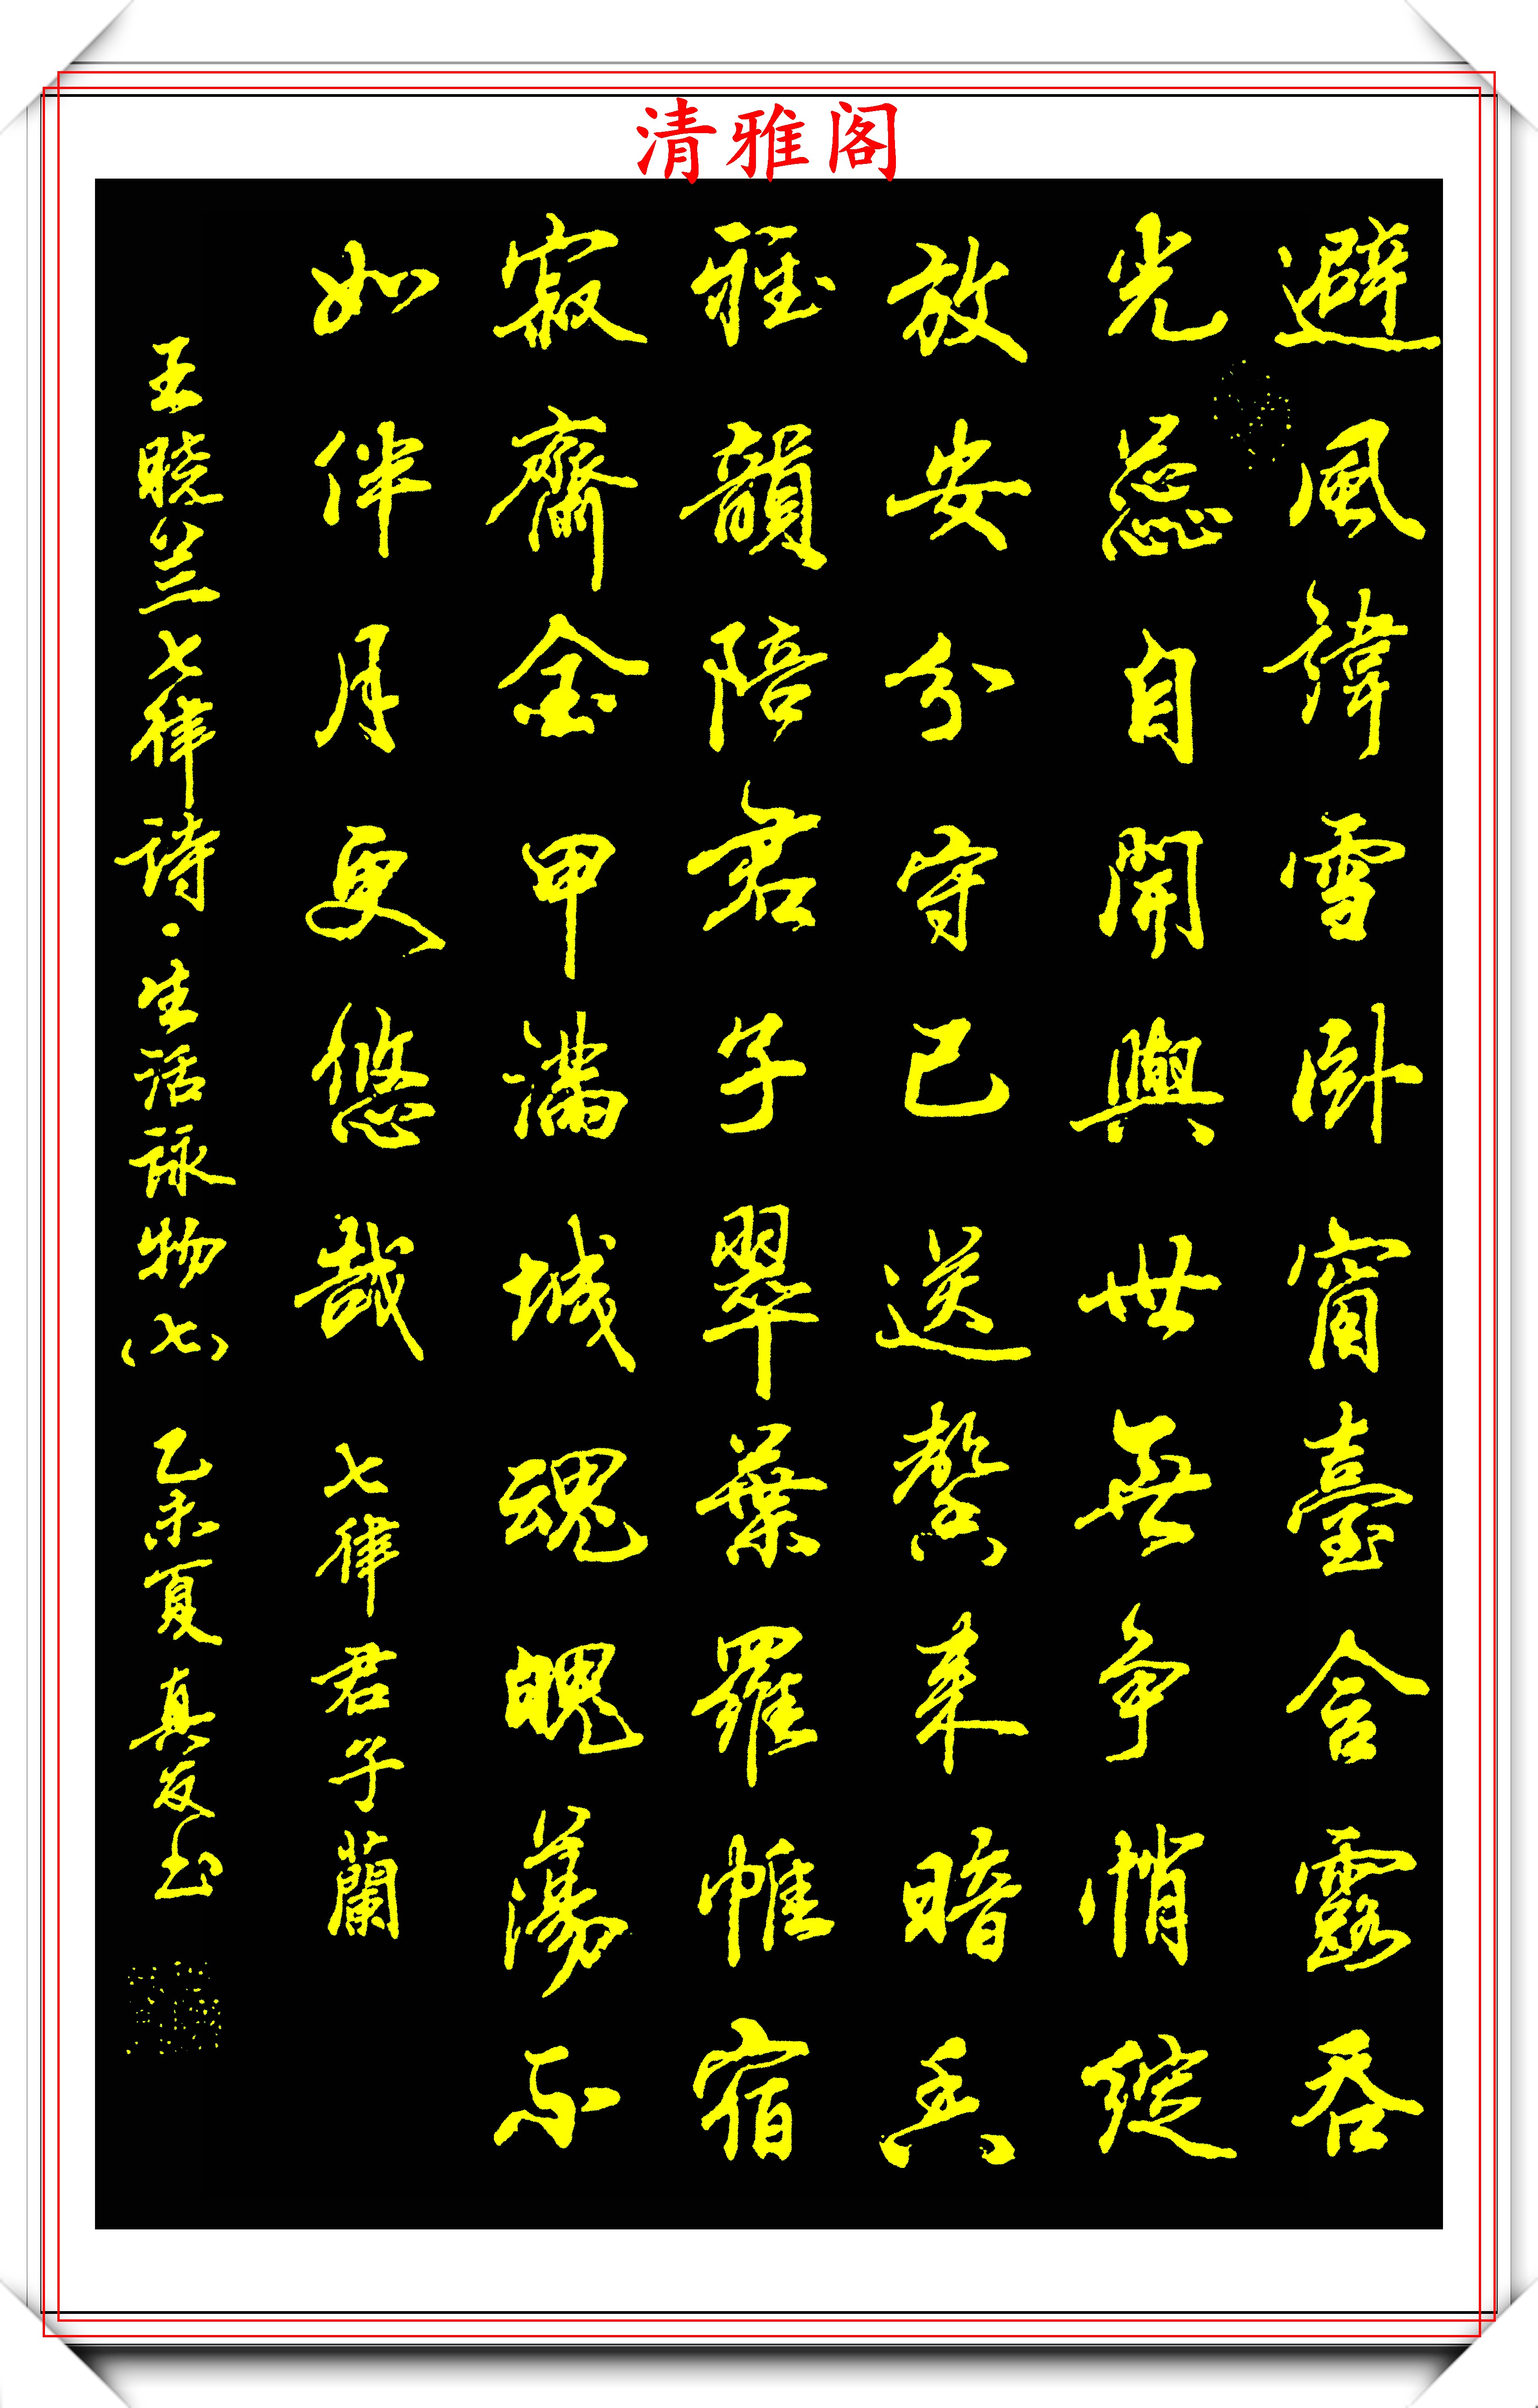 清雅阁
避風諱雪卧窗臺含露吞
光蕊自開與世無争悄綻
放安分守已送馨来暗香
雅韻陪君子翠葉羅帷宿
寂齋金甲满城魂魄蕩不
如伴月更悠哉 七律君子蘭
王晓兰七律诗·生活詠物(七) 乙未夏真友书